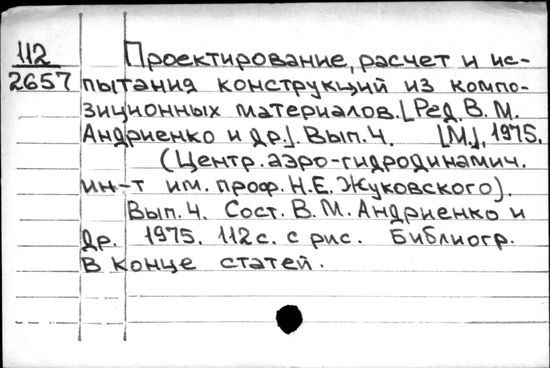 112
2657
Проектирование, расчет и ис-
пытания конструкций из компо-
зиционных материалов. [Ред. В. М.
Андриенко и др.]. Вып. 4. [М.], 1975.
(Центр. аэро-гидродинамич.
ин-т им. проф. Н. Е. Жуковского).
Вып. 4. Сост. В. М. Андриенко и
др. 1975. 112 с. с рис. Библиогр.
в конце статей.